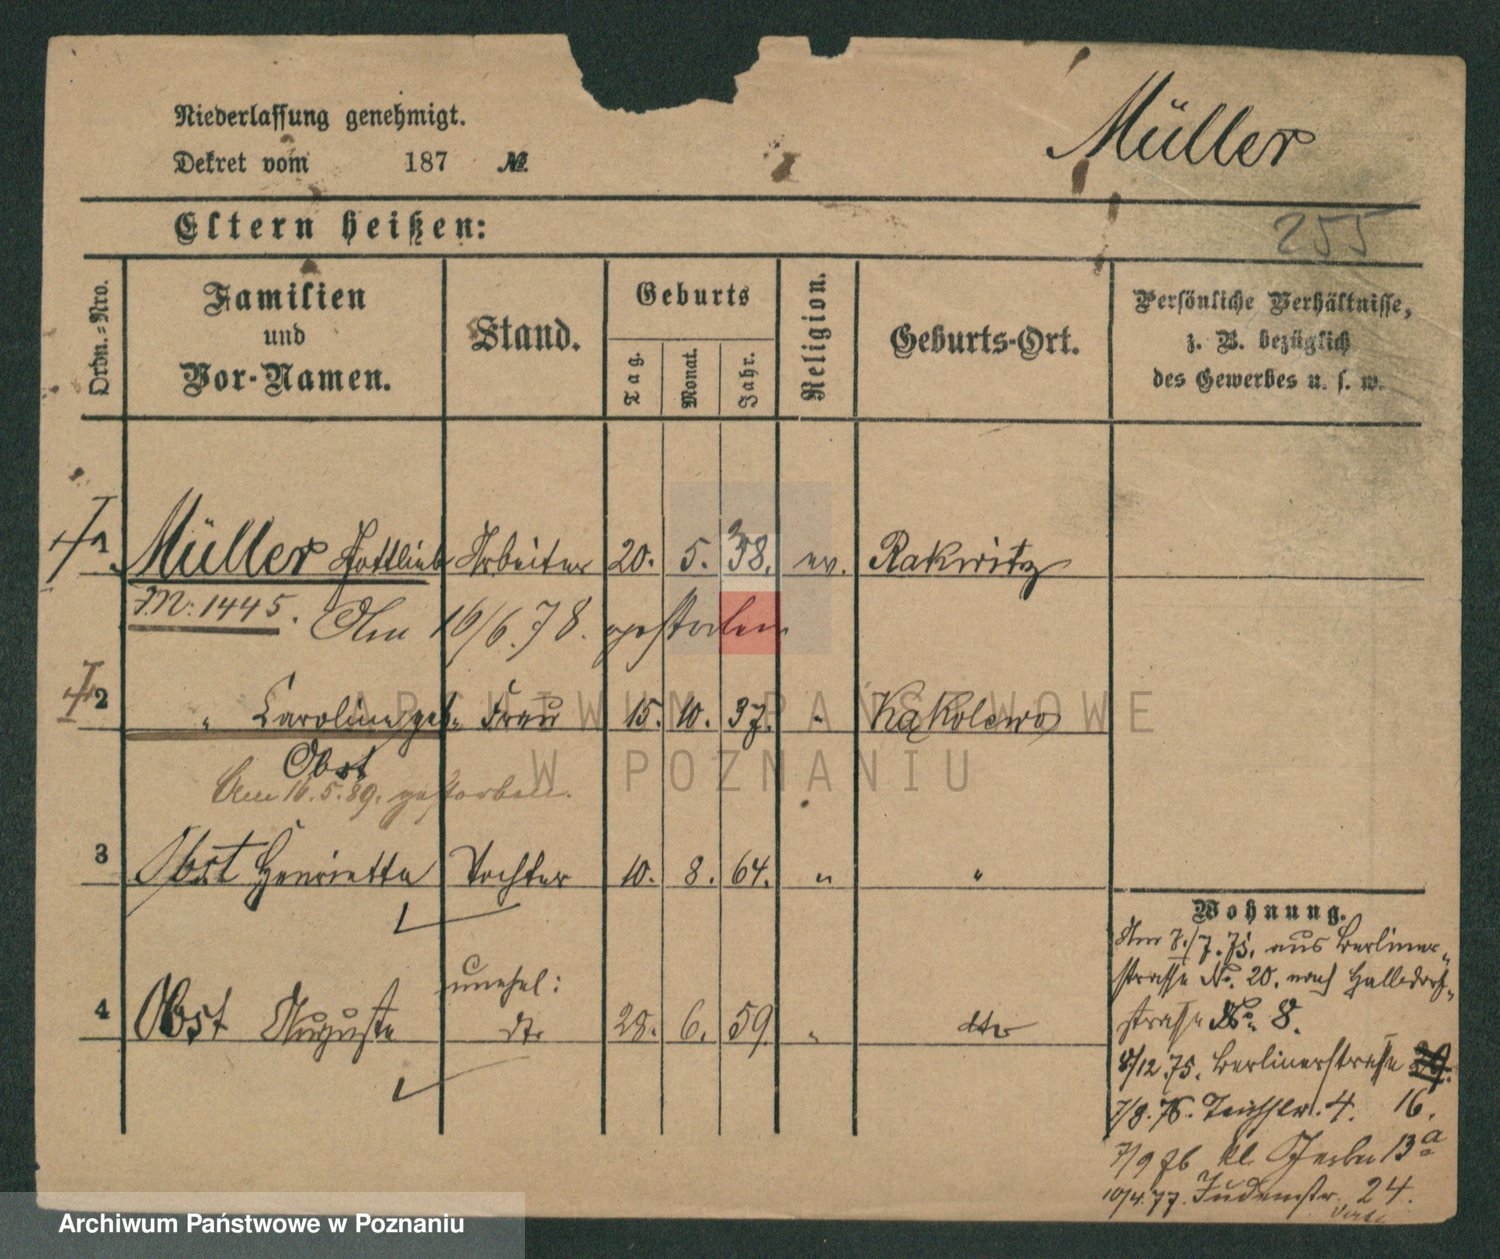 Niederlassung genehmigt.
Dekret vom 187 №
Müller
Eltern heißen:
255
Ordn.-Nro.
Familien
und
Vor-Namen.
Stand.
Geburts
Tag.
Monat.
Jahr.
Religion.
Geburts-Ort.
Persönliche Verhältnisse,
z. B. bezüglich
des Gewerbes u. s. w.
1 Müller Gottlieb Arbeiter 20. 5. 38. ev. Rakwitz
M: 1445. Am 16/6.78. gestorben
2 " Caroline geb. Frau 15. 10. 37. " Kąkolewo
Obst
Am 16.5.89. gestorben.
3 Obst Henriette Tochter 10. 8. 64. " "
unehel:
4 Obst Auguste dto 28. 6. 59. " dto
Wohnung.
Am 7./7.75. aus Berliner-
strasse No. 20. nach Halldorf-
strasse No. 8.
8/12.75. Berlinerstrasse
7/8.76. 4. 16.
7/9 76 kl. Gerber 13a
10/4.77. Judenstr. 24.
ARCHIWUM PAŃSTWOWE
W POZNANIU
Archiwum Państwowe w Poznaniu